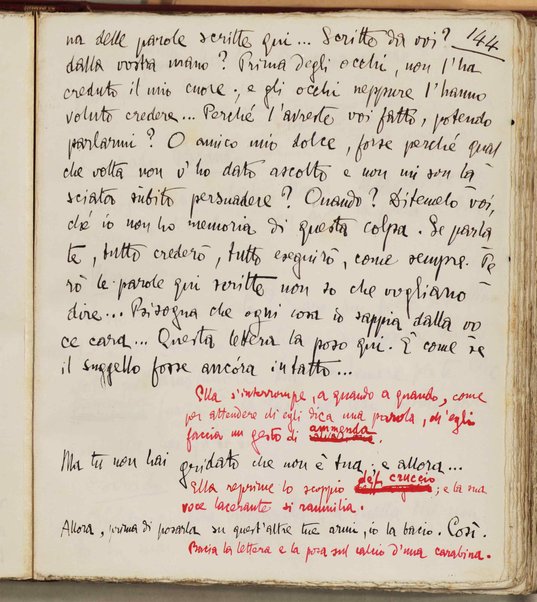 144
na delle parole scritte qui... Scritto da voi?
dalla vostra mano? Prima degli occhi, non l'ha
creduto il mio cuore; e gli occhi neppure l'hanno
voluto credere... Perché l'avreste voi fatto, potendo
parlarmi? O amico mio dolce, forse perché qual
che volta non v'ho dato ascolto e non mi son la
sciata sùbito persuadere? Quando? Ditemelo voi,
ché io non ho memoria di questa colpa. Se parla
te, tutto crederò, tutto eseguirò, come sempre. Pe
rò le parole qui scritte non so che vogliano
dire... Bisogna che ogni cosa io sappia dalla vo
ce cara... Questa lettera la poso qui. È come se
il suggello fosse ancóra intatto...
Ella s'interrompe, a quando a quando, come
per attendere ch'egli dica una parola, ch'egli
faccia un gesto di ammenda
Ma tu non hai gridato che non è tua; e allora...
Ella reprime lo scoppio del cruccio; e la sua
voce lacerante si raumilia.
Allora, prima di posarla su quest'altre tue armi, io la bacio. Così.
Bacia la lettera e la posa sul calcio d'una carabina.